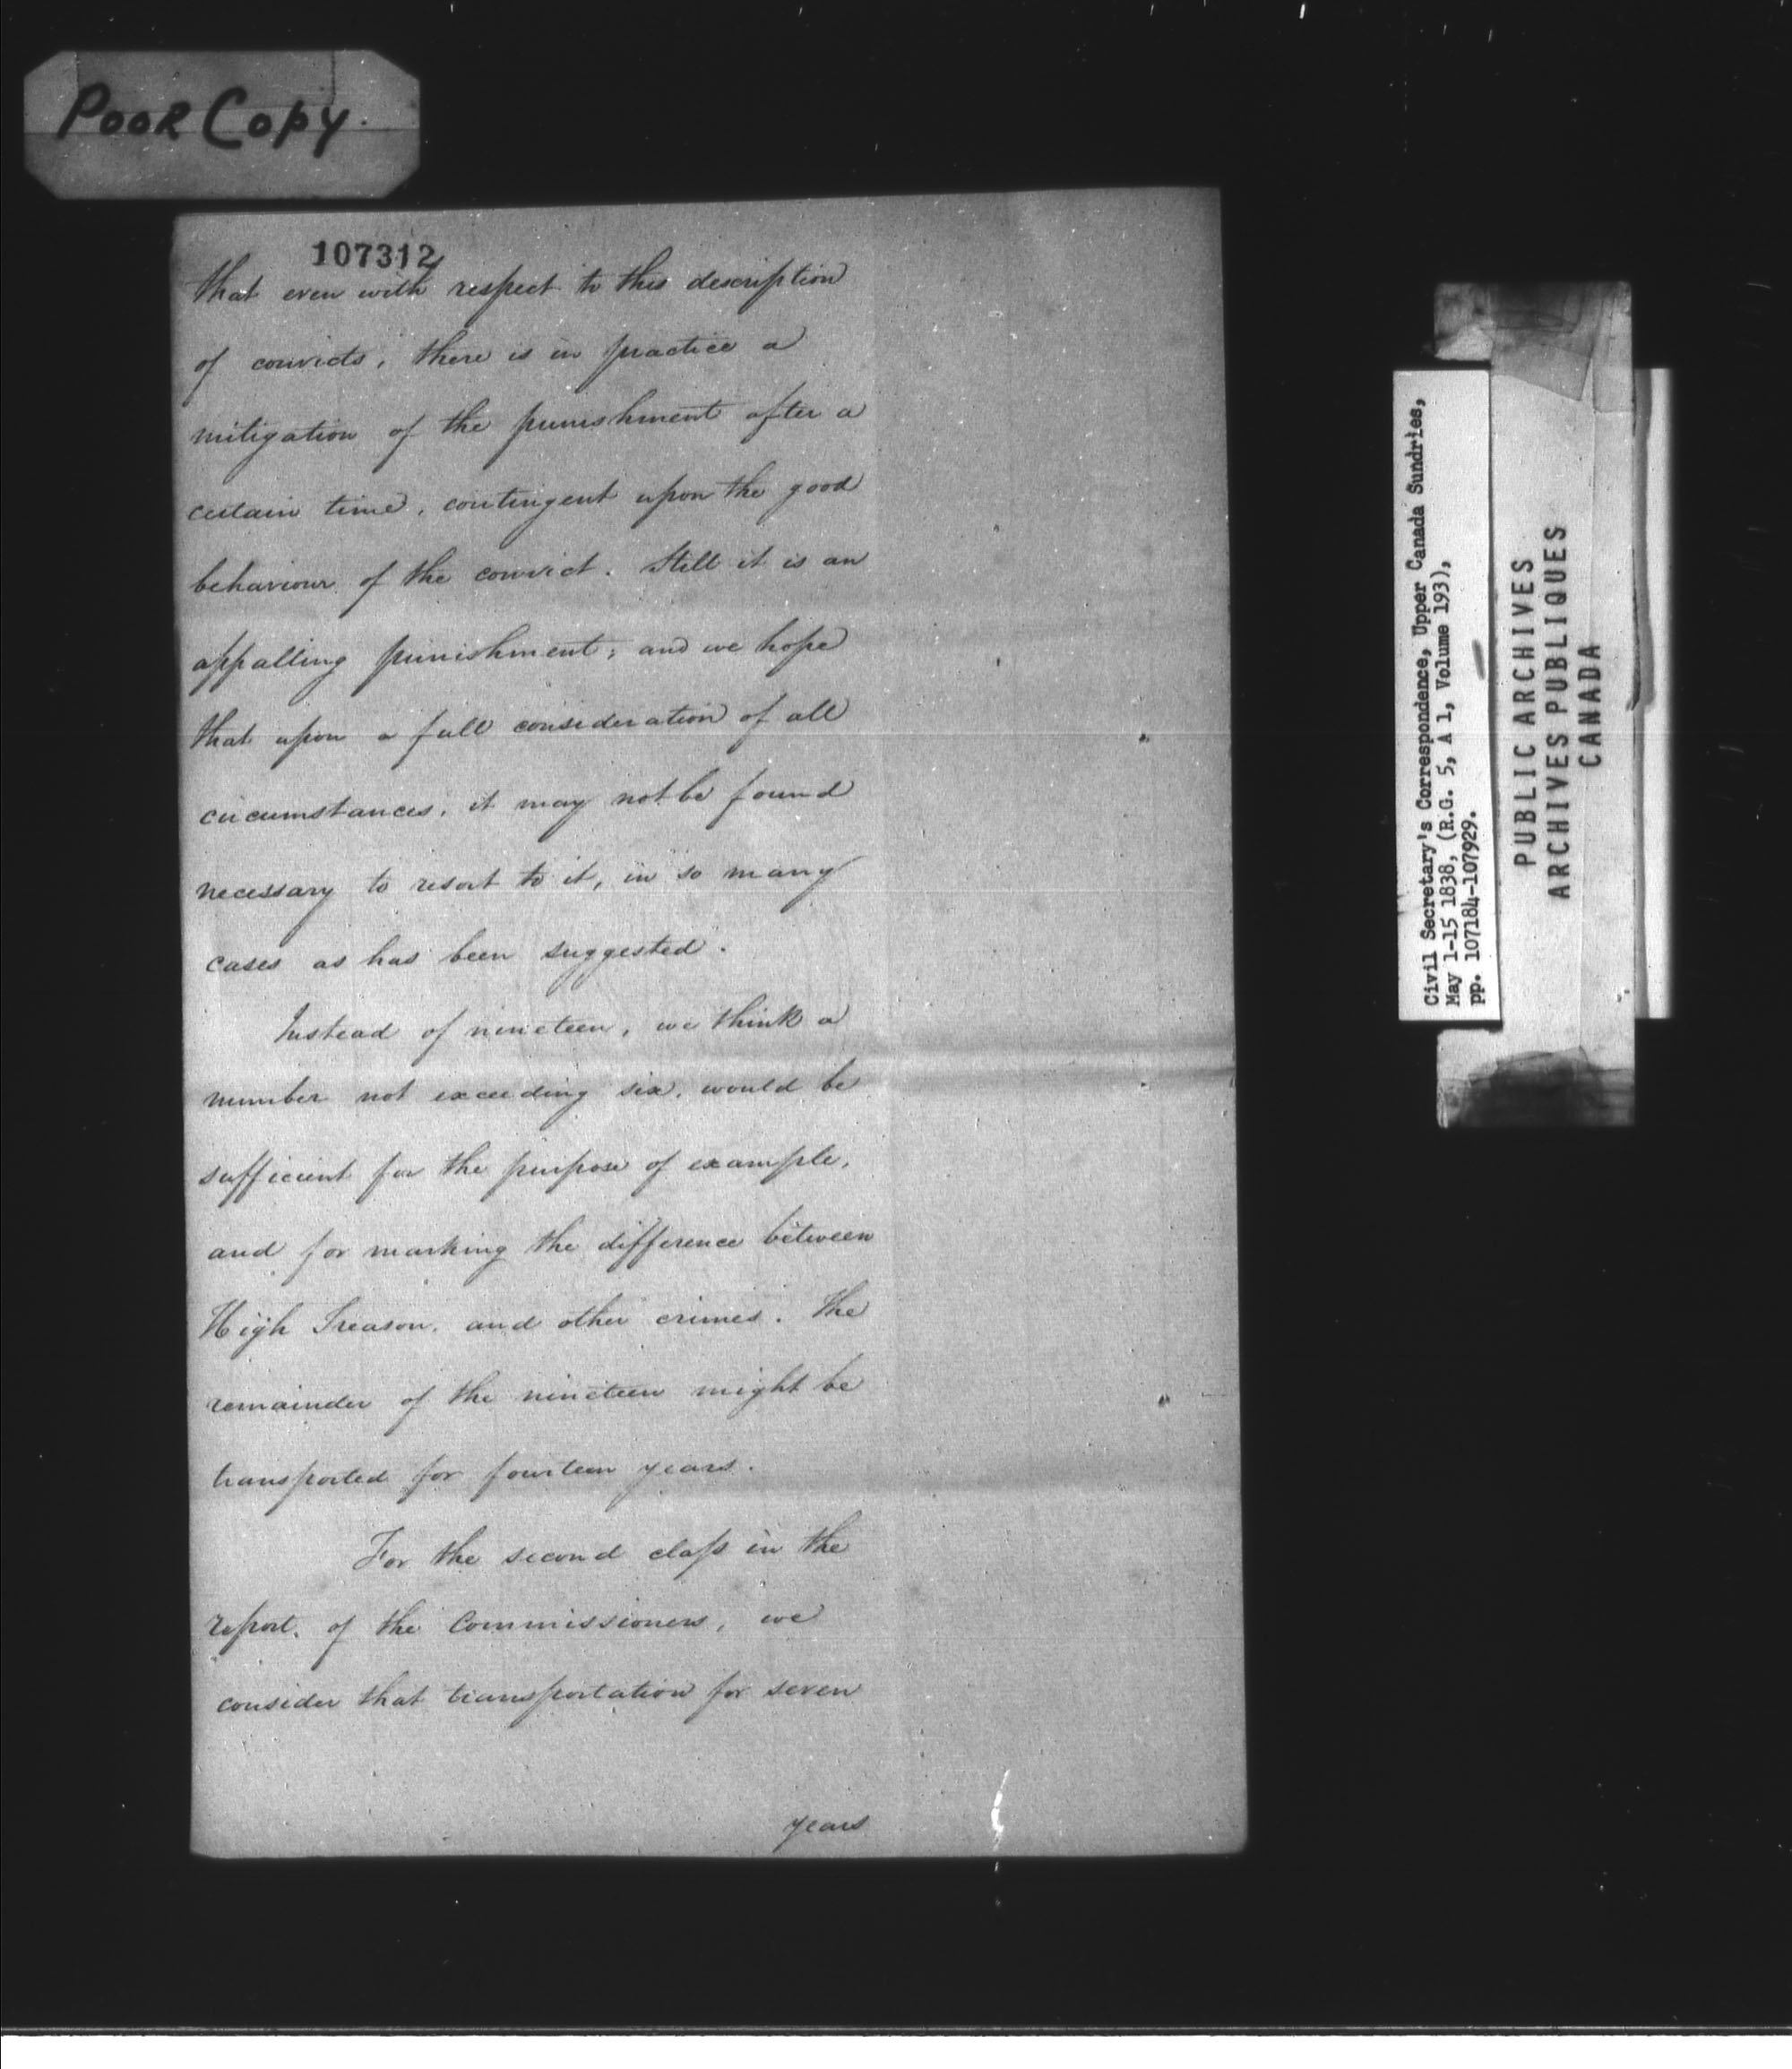 POOR COPY.
107312
that even with respect to this description
of convicts, there is in practice a
mitigation of the punishment after a
certain time, contingent upon the good
behaviour of the convict. Still it is an
appalling punishment; and we hope
that upon a full consideration of all
circumstances, it may not be found
necessary to resort to it, in so many
cases as has been suggested.
Instead of nineteen, we think a
number not exceeding six, would be
sufficient for the purpose of example,
and for marking the difference between
High Treason, and other crimes. The
remainder of the nineteen might be
transported for fourteen years.
For the second class in the
report, of the Commissioners, we
consider that transportation for seven
years
Civil Secretary's Correspondence, Upper Canada Sundries,
May 1-15 1838, (R.G. 5, A 1, Volume 193),
pp. 107184-107929.
PUBLIC ARCHIVES
ARCHIVES PUBLIQUES
CANADA